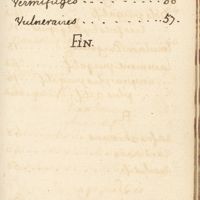 Vermifuges . . . . . . . . 66
Vulneraires . . . . . . . . 57.
Fin.